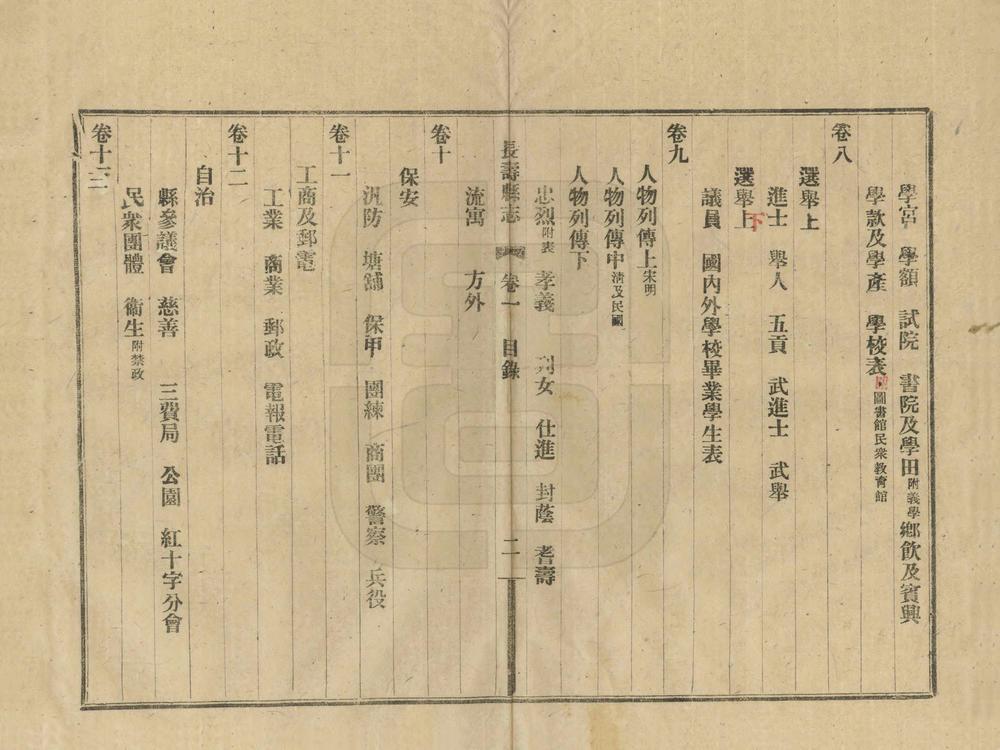 學宮 學額 試院 書院及學田附義學 鄉飲及賓興
學款及學產 學校表附圖書館民衆教育館
卷八
選舉上
進士 舉人 五貢 武進士 武舉
選舉上下
議員 國內外學校畢業學生表
卷九
人物列傳上宋明
人物列傳中淸及民國
人物列傳下
忠烈附表 孝義 列女 仕進 封蔭 耆壽
長壽縣志 卷一 目錄 二
流寓 方外
卷十
保安
汛防 塘舖 保甲 團練 商團 警察 兵役
卷十一
工商及郵電
工業 商業 郵政 電報電話
卷十二
自治
縣參議會 慈善 三費局 公園 紅十字分會
民衆團體 衞生附禁政
卷十三